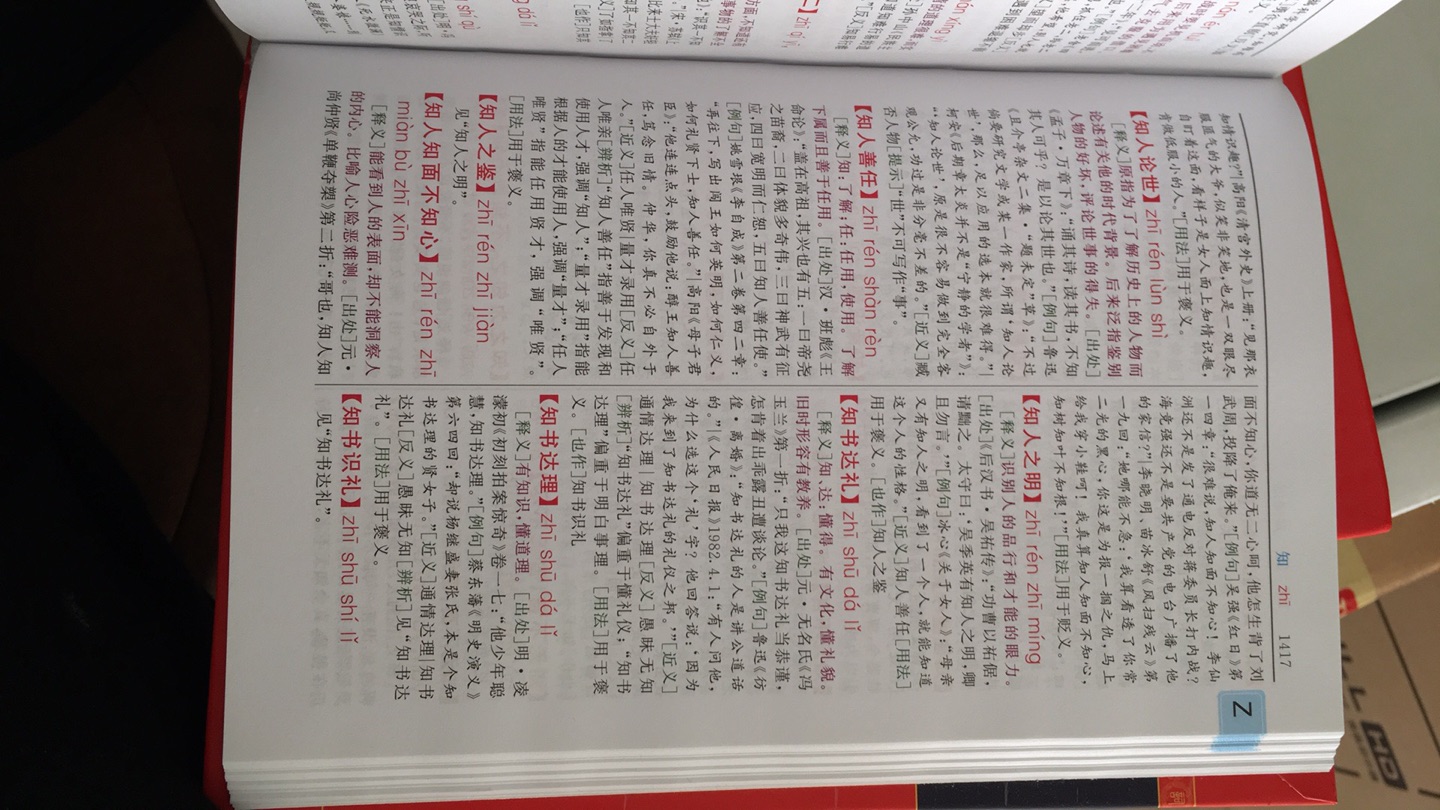 知 zhī 1417
Z
知情识趣”|高阳《清宫外史》上册:“见那衣
服盛气的大爷,似笑非笑地,也是一双眼尽
自盯着这面,看样子是女人面上知情识趣,
肯做低服小的人。”[用法]用于褒义。
【知人论世】zhī rén lùn shì
[释义]原指为了了解历史上的人物而
论述有关他的时代背景。后来泛指鉴别
人物的好坏,评论世事的得失。[出处]
《孟子·万章下》:“诵其诗,读其书,不知
其人可乎?是以论其世也。”[例句]鲁迅
《且介亭杂文二集·“题未定”草》:“不过
倘要研究文学或某一作家,所谓‘知人论
世’,那么,足以应用的选本就很难得。”|
柯灵《后期章太炎并不是“宁静的学者”》:
“‘知人论世’,原是很不容易做到完全客
观公允,功过是非分毫不差的。”[近义]臧
否人物[提示]“世”不可写作“事”。
【知人善任】zhī rén shàn rèn
[释义]知:了解;任:任用,使用。了解
下属而且善于任用。[出处]汉·班彪《王
命论》:“盖在高祖,其兴也有五:一曰帝尧
之苗裔,二曰体貌多奇伟,三曰神武有征
应,四曰宽明而仁恕,五曰知人善任使。”
[例句]姚雪垠《李自成》第二卷第四二章:
“再往下,写出闯王如何英明,如何仁义,
如何礼贤下士,知人善任。”|高阳《母子君
臣》:“他连连点头,鼓励他说,醇王知人善
任,笃念旧情。仲华,你真不必自外于
人。”[近义]任人唯贤|量才录用[反义]任
人唯亲[辨析]“知人善任”指善于发现和
使用人才,强调“知人”;“量才录用”指能
根据人的才能使用人,强调“量才”;“任人
唯贤”指能任用贤才,强调“唯贤”。
[用法]用于褒义。
【知人之鉴】zhī rén zhī jiàn
见“知人之明”。
【知人知面不知心】zhī rén zhī
miàn bù zhī xīn
[释义]能看到人的表面,却不能洞察人
的内心。比喻人心险恶难测。[出处]元·
尚仲贤《单鞭夺槊》第二折:“哥也,知人知
面不知心,你道无二心呵,他怎生背了刘
武周,投降了俺来。”[例句]吴强《红日》第
一四章:“很难说,知人知面不知心!李仙
洲还不是发了通电反对蒋委员长打内战?
海竞强还不是要共产党的电台广播了他
的家信?”|李晓明、苗冰舒《风扫残云》第
一九回:“她哪能不急:我算看透了你常
二光的黑心,你这是为报一掴之仇,马上
给我穿小鞋呵!我真算知人知面不知心,
知树知叶不知根!’”[用法]用于贬义。
【知人之明】zhī rén zhī míng
[释义]识别人的品行和才能的眼力。
[出处]《后汉书·吴祐传》:“功曹以祐倨,
请黜之。太守曰:‘吴季英有知人之明,卿
且勿言。’”[例句]冰心《关于女人》:“母亲
又有知人之明,看到了一个人,就能知道
这个人的性格。”[近义]知人善任[用法]
用于褒义。[也作]知人之鉴
【知书达礼】zhī shū dá lǐ
[释义]知、达:懂得。有文化,懂礼貌。
旧时形容有教养。[出处]元·无名氏《冯
玉兰》第一折:“只我这知书达礼当恭谨,
怎肯着出乖露丑遭谈论。”[例句]鲁迅《彷
徨·离婚》:“知书达礼的人是讲公道话
的。”|《人民日报》1982.4.1.“有人问他,
为什么选这个‘礼’字?他回答说,‘因为
我来到了知书达礼的礼仪之邦。’”[近义]
通情达理|知书达理[反义]愚昧无知
[辨析]“知书达礼”偏重于懂礼仪;“知书
达理”偏重于明白事理。[用法]用于褒
义。[也作]知书识礼
【知书达理】zhī shū dá lǐ
[释义]有知识,懂道理。[出处]明·凌
濛初《初刻拍案惊奇》卷一七:“他少年聪
慧,知书达理。”[例句]蔡东藩《明史演义》
第六四回:“却说杨继盛妻张氏,本是个知
书达理的贤女子。”[近义]通情达理|知书
达礼[反义]愚昧无知[辨析]见“知书达
礼”。[用法]用于褒义。
【知书识礼】zhī shū shí lǐ
见“知书达礼”。